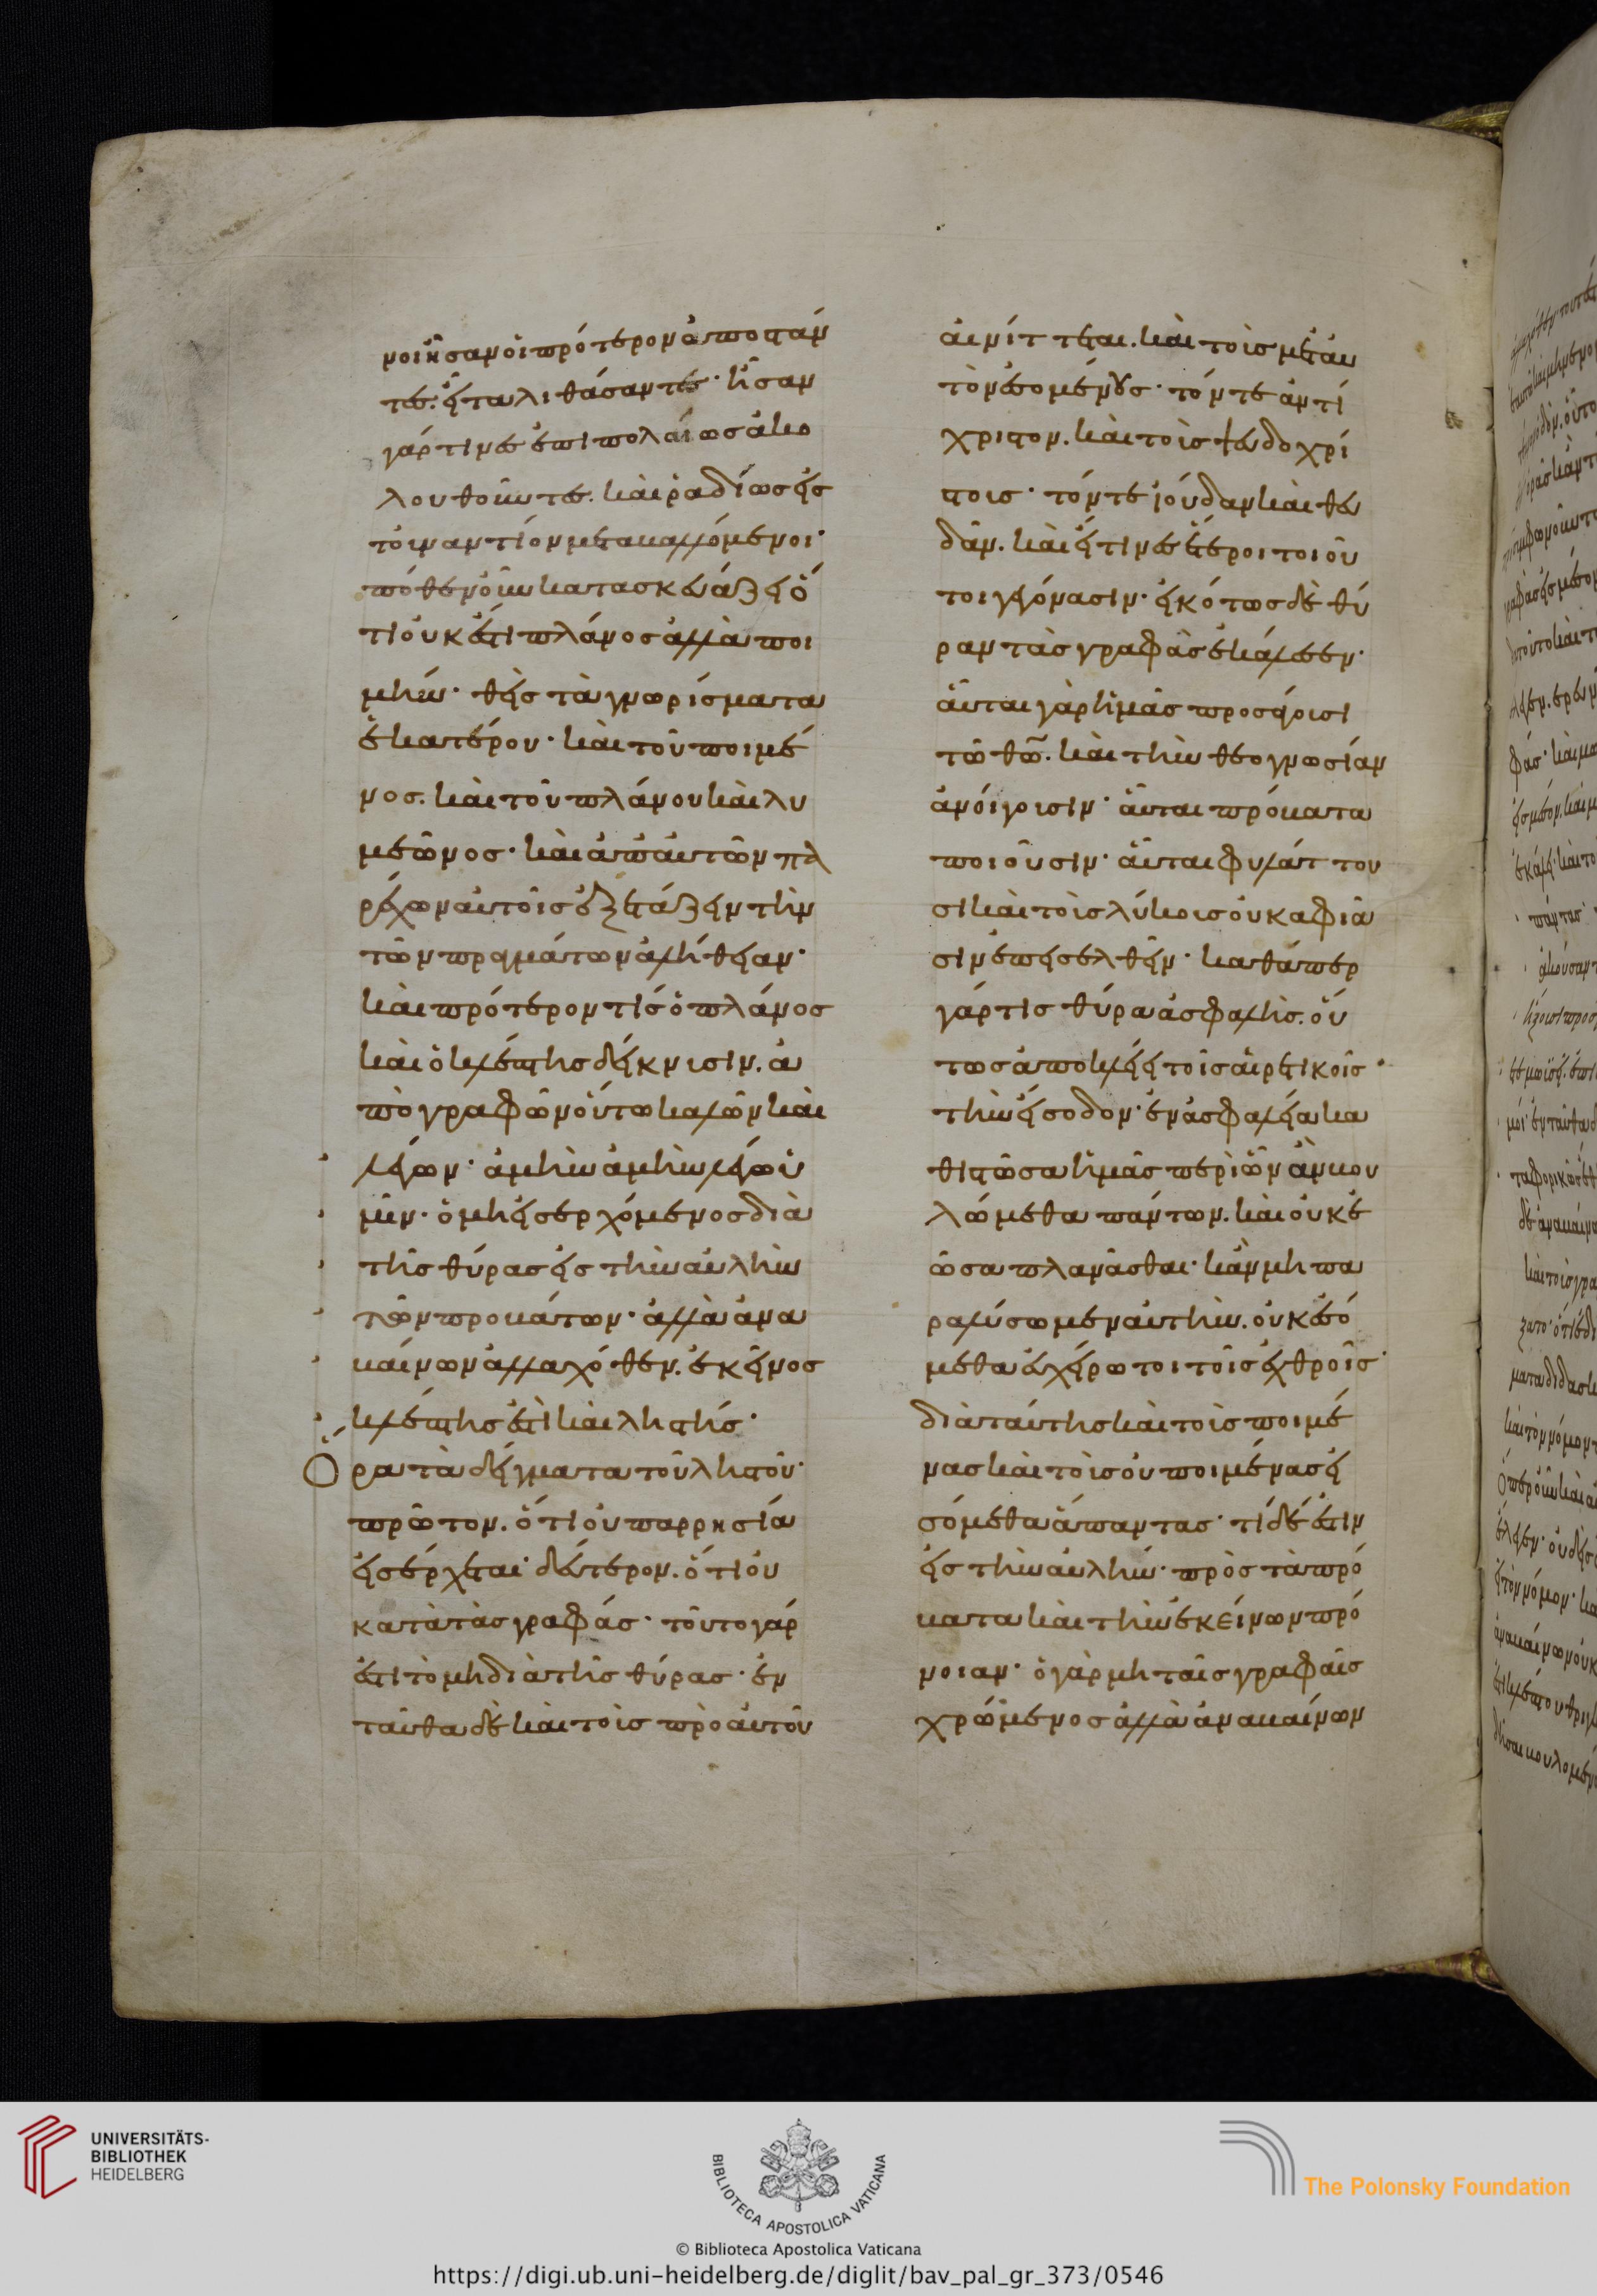 νοι ἦσαν οἱ πρότερον ἀποστάν
τες. εἶτα λιθάσαντες· ἦσαν
γάρ τινες ἐπιπολαίως ἀκο
λουθοῦντες. καὶ ῥαδίως εἰς
τοὐναντίον μεταβαλλόμενοι·
πόθεν οὖν κατασκευάζει ὅ
τι οὐκ ἔστι πλάνος ἀλλὰ ποι
μήν· θεὶς τὰ γνωρίσματα
ἑκατέρου· καὶ τοῦ ποιμέ
νος. καὶ τοῦ πλάνου καὶ λυ
μεῶνος· καὶ ἀπ' αὐτῶν πα
ρέχων αὐτοῖς ἐξετάζειν τὴν
τῶν πραγμάτων ἀλήθειαν·
καὶ πρότερον τίς ὁ πλάνος
καὶ ὁ κλέπτης δείκνυσιν. ἀ
πὸ γραφῶν οὕτω καλῶν καὶ
λέγων· ἀμὴν ἀμὴν λέγω ὑ
μῖν· ὁ μὴ εἰσερχόμενος διὰ
τῆς θύρας εἰς τὴν αὐλὴν
τῶν προβάτων· ἀλλὰ ἀνα
βαίνων ἀλλαχόθεν. ἐκεῖνος
κλέπτης ἐστὶ καὶ λῃστής·
Ὅρα τὰ δείγματα τοῦ λῃστοῦ·
πρῶτον. ὅτι οὐ παρρησία
εἰσέρχεται· δεύτερον. ὅτι οὐ
κατὰ τὰς γραφάς· τοῦτο γάρ
ἐστι τὸ μὴ διὰ τῆς θύρας· ἐν
ταῦθα δὲ καὶ τοὺς πρὸ αὐτοῦ
αἰνίττεται. καὶ τοὺς μετ' αὐ
τὸν ἐσομένους· τόν τε ἀντί
χριστον. καὶ τοὺς ψευδοχρί
στους· τόν τε ἰούδαν καὶ θευ
δᾶν. καὶ εἴ τινες ἕτεροι τοιοῦ
τοι γεγόνασιν· εἰκότως δὲ θύ
ραν τὰς γραφὰς ἐκάλεσεν·
αὗται γὰρ ἡμᾶς προσάγουσι
τῷ θῶ. καὶ τὴν θεογνωσίαν
ἀνοίγουσιν· αὗται πρόβατα
ποιοῦσιν· αὗται φυλάττου
σι καὶ τοὺς λύκους οὐκ ἀφιᾶ
σιν ἐπεισελθεῖν· καθάπερ
γάρ τις θύρα ἀσφαλὴς. οὕ
τως ἀποκλείει τοῖς αἱρετικοῖς·
τὴν εἴσοδον· ἐν ἀσφαλεία κα
θιστῶσα ἡμᾶς περὶ ὧν ἂν βου
λώμεθα πάντων. καὶ οὐκ ἐ
ῶσα πλανᾶσθαι· κἂν μὴ πα
ραλύσωμεν αὐτὴν. οὐκ ἐσό
μεθα εὐχείρωτοι τοῖς ἐχθροῖς·
διὰ ταύτης καὶ τοὺς ποιμέ
νας καὶ τοὺς οὐ ποιμένας εἰ
σόμεθα ἅπαντας· τί δέ ἐστιν
εἰς τὴν αὐλήν· πρὸς τὰ πρό
βατα καὶ τὴν ἐκείνων πρό
νοιαν· ὁ γὰρ μὴ ταῖς γραφαῖς
χρώμενος ἀλλὰ ἀναβαίνων
UNIVERSITÄTS-
BIBLIOTHEK
HEIDELBERG
BIBLIOTECA APOSTOLICA VATICANA
The Polonsky Foundation
© Biblioteca Apostolica Vaticana
https://digi.ub.uni-heidelberg.de/diglit/bav_pal_gr_373/0546